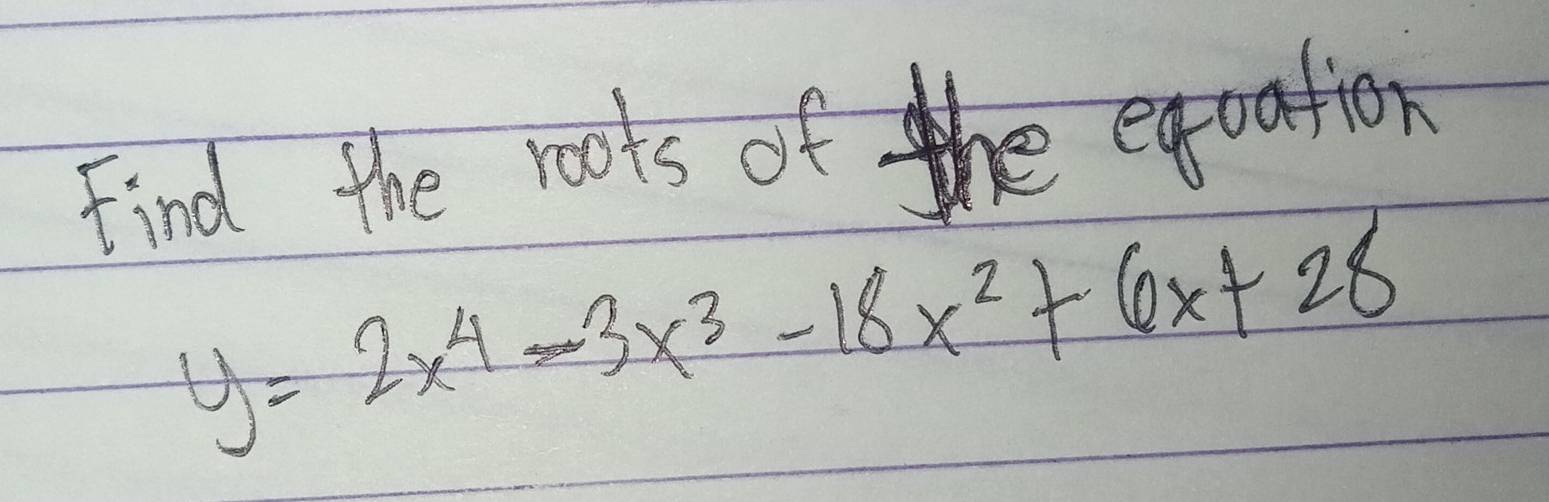 Find the roots of the equation
y = 2x⁴ - 3x³ - 18x² + 6x + 28